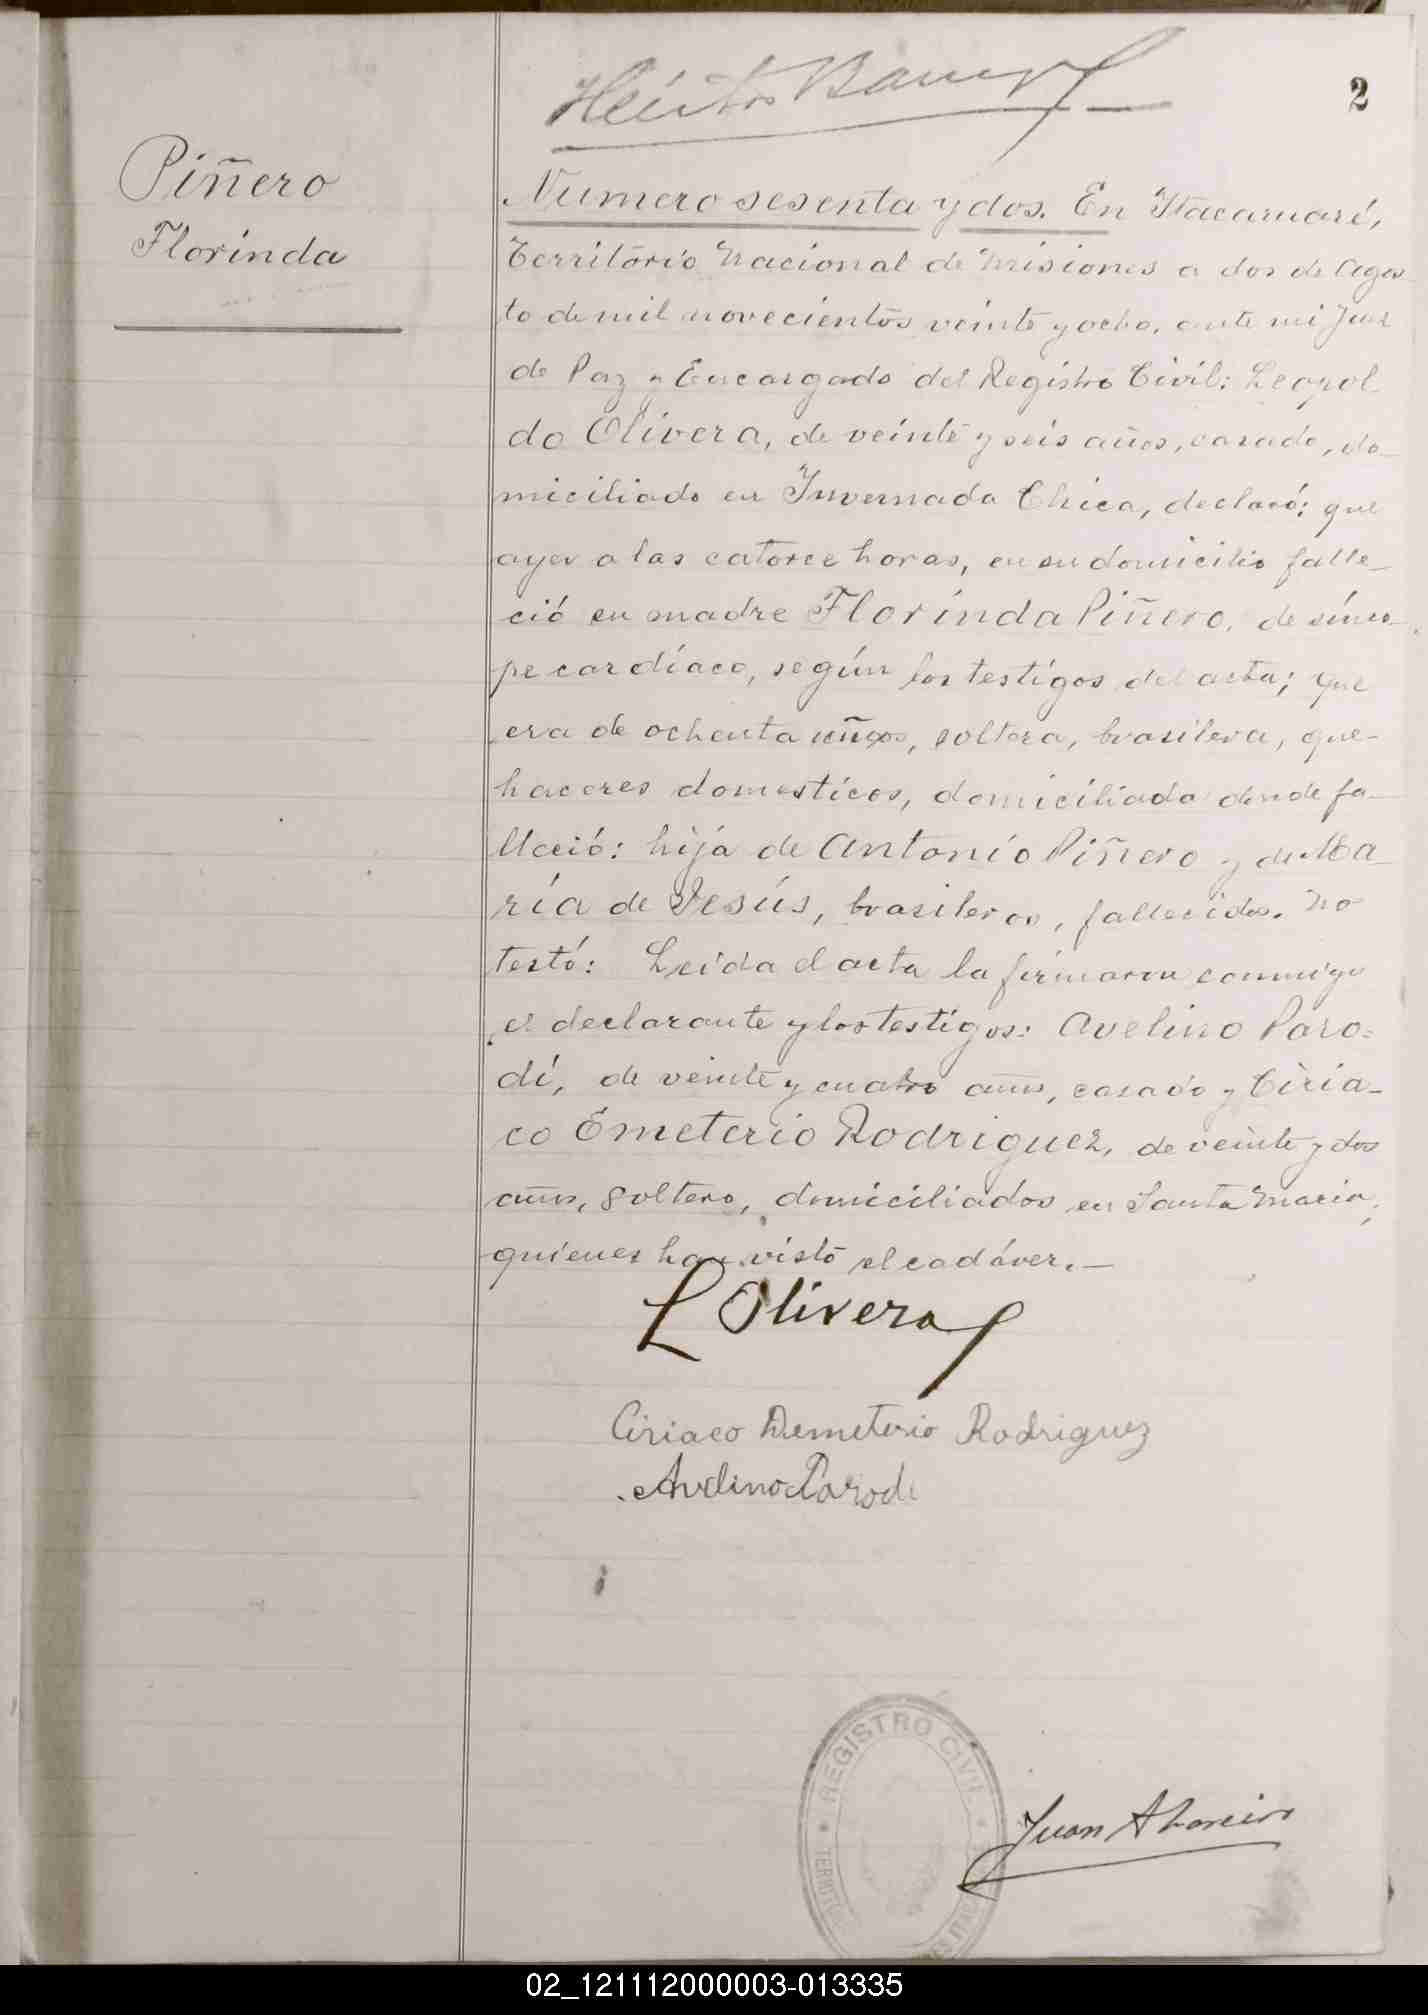 2
Piñero
Florinda
Numero sesenta y dos. En Itacaruaré,
Territorio Nacional de Misiones a dos de Agos
to de mil novecientos veinte y ocho, ante mi Juez
de Paz y Encargado del Registro Civil: Leopol
do Olivera, de veinte y seis años, casado, do_
miciliado en Invernada Chica, declaró: que
ayer a las catorce horas, en su domicilio falle_
ció su madre Florinda Piñero, de sínco_
pe cardíaco, según los testigos del acta; que
era de ochenta años, soltera, brasilera, que-
haceres domesticos, domiciliada donde fa_
lleció: hija de Antonio Piñero y de Ma_
ría de Jesús, brasileros, fallecidos. No
testó: Leida el acta la firmaron conmigo
el declarante y los testigos: Avelino Paro=
dí, de veinte y cuatro años, casado y Ciria_
co Emeterio Rodriguez, de veinte y dos
años, soltero, domiciliados en Santa Maria,
quienes han visto el cadáver._
L Olivera
Ciriaco Demeterio Rodriguez
Avelino Parodi
REGISTRO CIVIL
Juan A
02_121112000003-013335